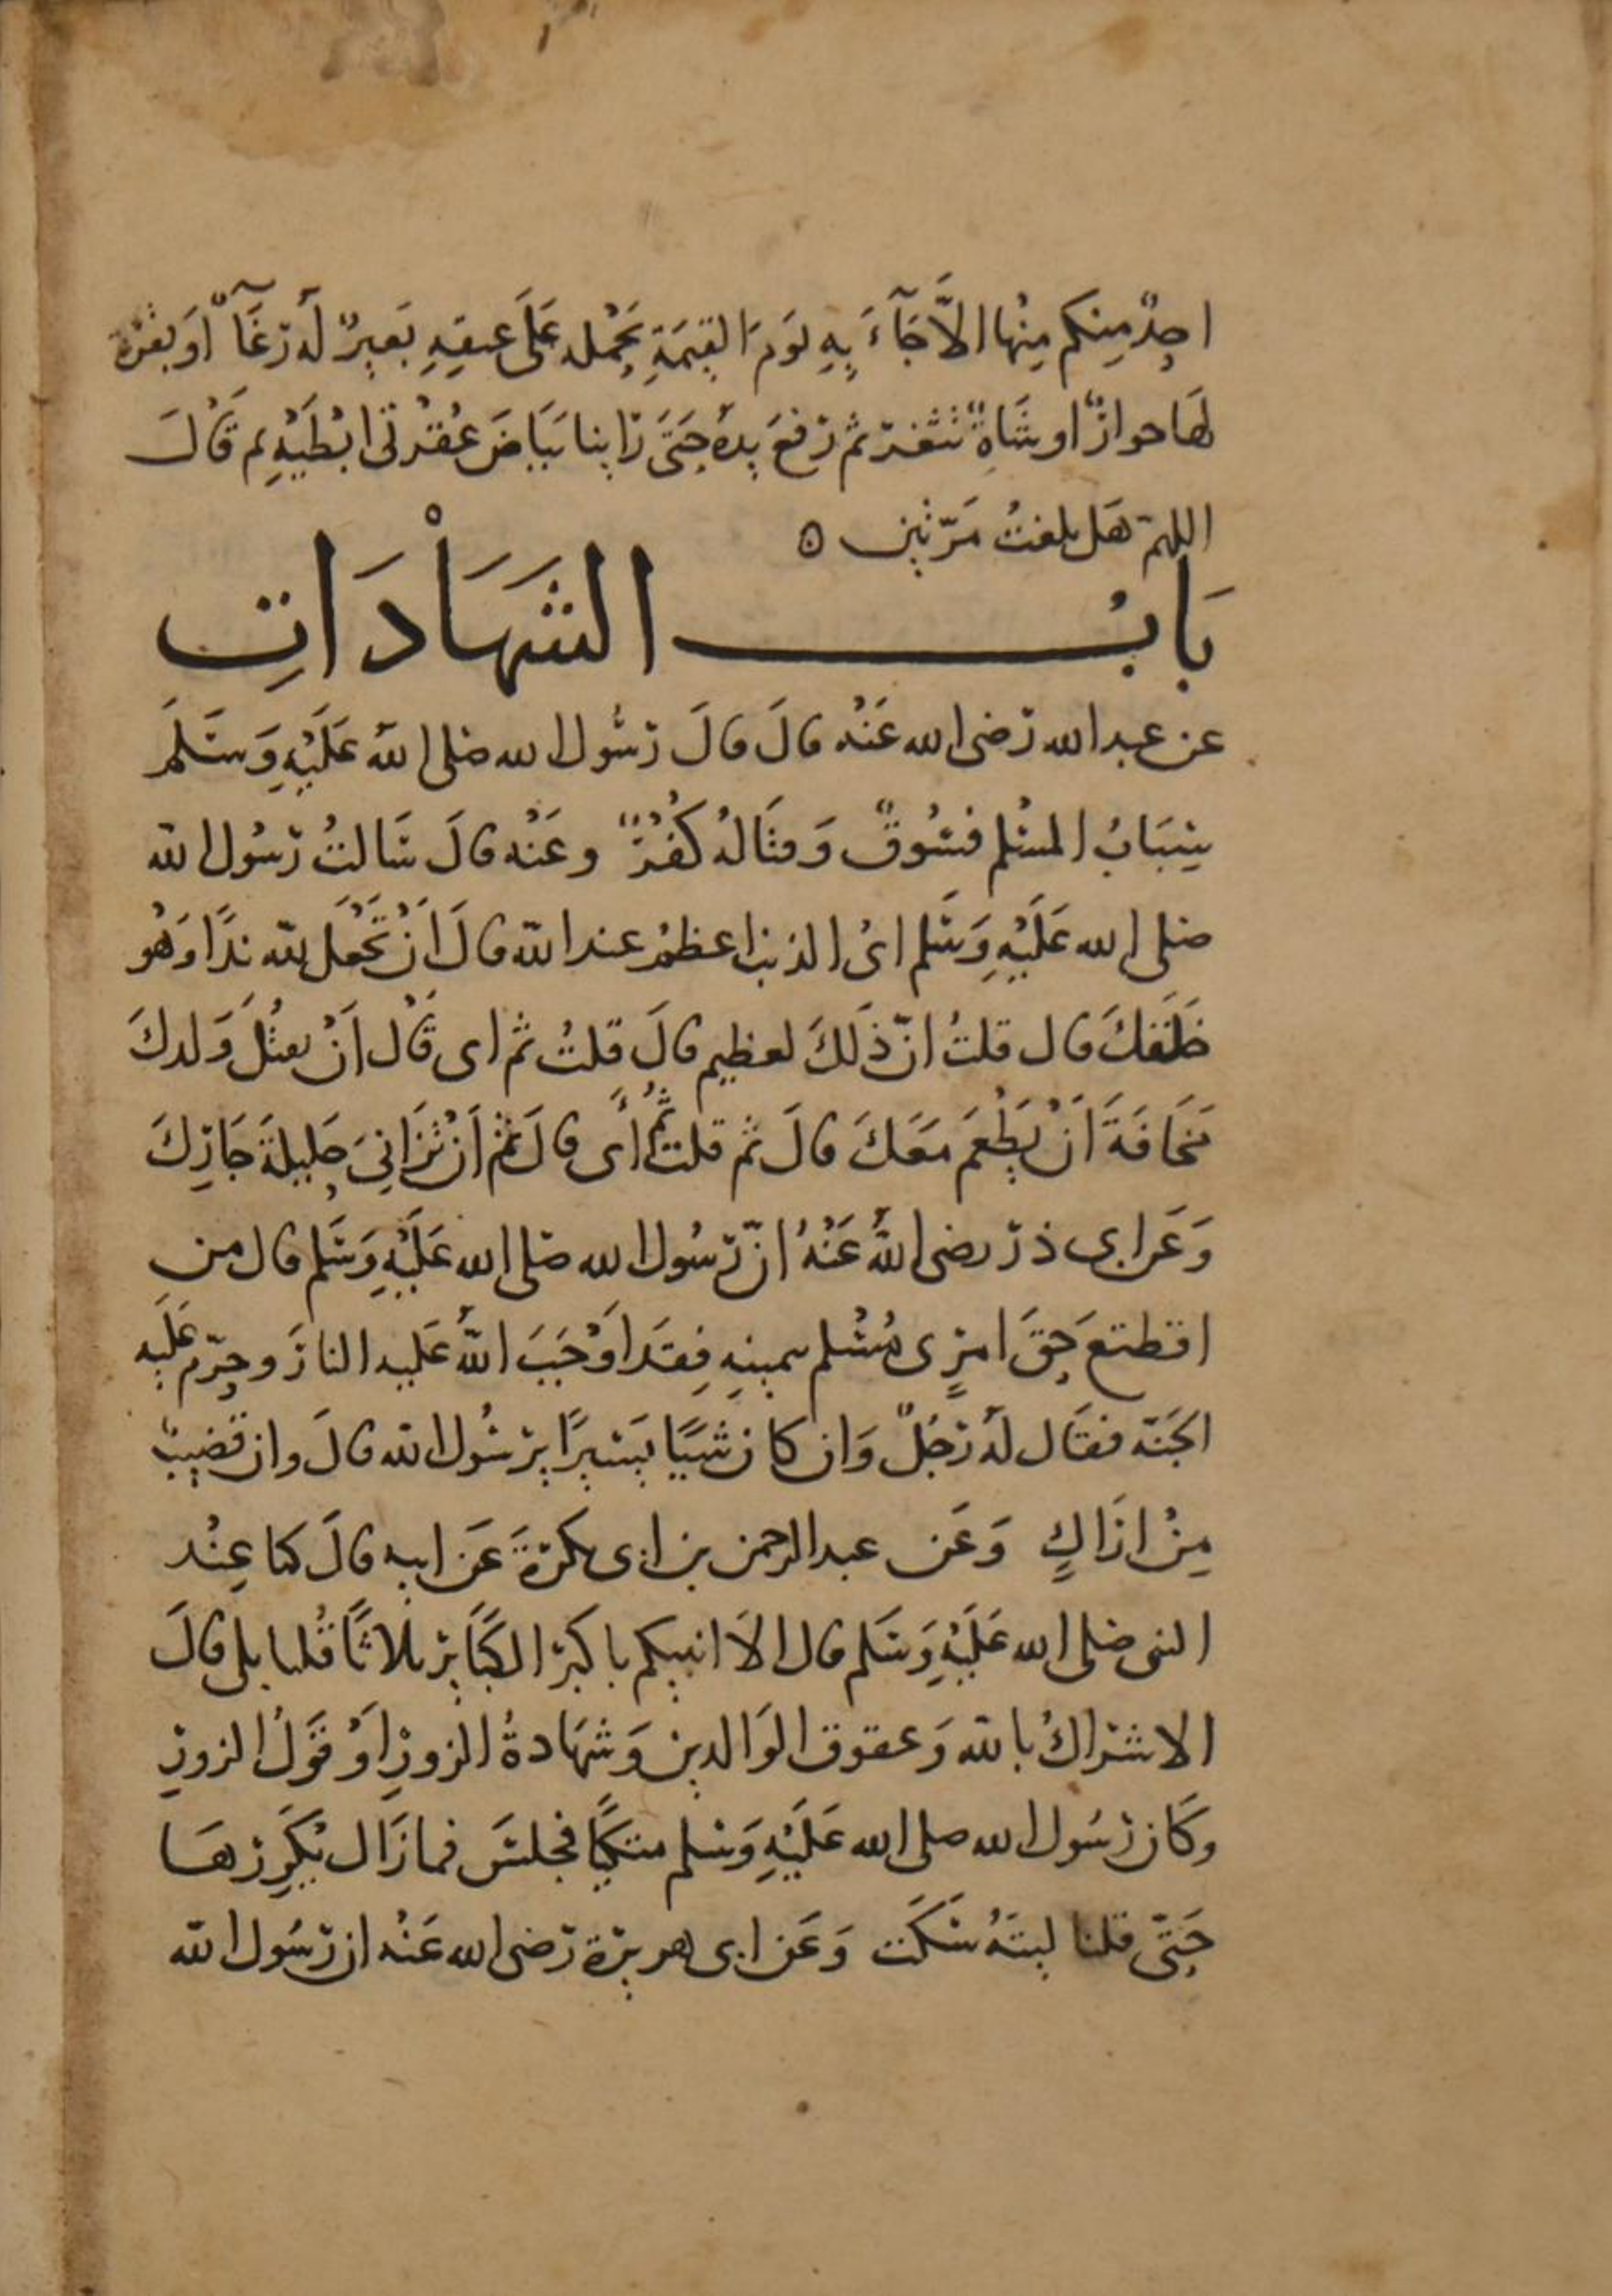 احدٌ منكم منها الّا جَآءَ بِهِ يَومَ القيمَةِ يَحْمله عَلَى عنقِهِ بَعيرٌ لَهُ رُغَآءٌ اَو بقرة
لهَا خوارٌ او شَاةٌ تثغر ثم رَفعَ يدهُ حَتىَ رَاينا بيَاضَ عُفْرتى ابْطَيْهِ ثم قَالَ
اللهمّ هَل بلغتُ مَرّتين ه
بَابُ الشَهَادَاتِ
عن عبد الله رَضى الله عَنْه قالَ قالَ رَسُول الله صَلى اللهُ عَلَيْهِ وَسَلمَ
سِبَابُ المسْلم فسُوقٌ وَقتَالهُ كُفْرٌ وعَنْه قالَ سَالتُ رَسُول الله
صَلى الله عَلَيْهِ وَسَلم اىُ الذنب اعظمُ عند الله قالَ اَنْ تَجْعَل لله ندًا وَهُو
خَلَقَكَ قال قلتُ انّ ذَلكَ لعظيم قالَ قلتُ ثم اى قَال اَنْ تقتُلَ وَلدكَ
مَخَافَةَ اَنْ يَطْعَمَ مَعَكَ قالَ ثم قلتُ ثُمَّ اَى قالَ ثمْ اَنْ تُزَانِىَ حَلِيلَةَ جَارِكَ
وَعَن ابى ذرّ رضى اللهُ عَنْهُ انّ رَسُول الله صَلى الله عَلَيْهِ وَسَلم قال من
اقتطعَ حَقَ امرِى مُسْلم بيمينِهِ فِقَد اَوْجَبَ اللهُ عَليه النارَ وحرّم عَلَيه
الجَنّة فقَال لَهُ رَجُلٌ وَان كان شَيًا يَسيرًا يرَسُول الله قالَ وان قضيبٌ
مِنْ ارَاكٍ وَعَن عبد الرحمن بن ابى بكرَةَ عَن ابيه قالَ كنا عِنْد
النبى صَلى الله عَلَيْهِ وَسَلم قال الاَ انبيكم باكبَر الكَبَاير ثلاثًا قُلنا بلى قالَ
الاشرَاكُ بالله وَعقوق الوَالدين وَشهَادةُ الزورِ اَوْ قَوْلُ الزورِ
وكَان رَسُول الله صلى الله عَلَيْهِ وَسَلم متكيًا فجلسَ فما زَال يُكَرِرُهَا
حَتّى قلنا ليتَهُ سَكَت وَعَن ابى هريرَة رَضى الله عَنْه ان رَسُول الله